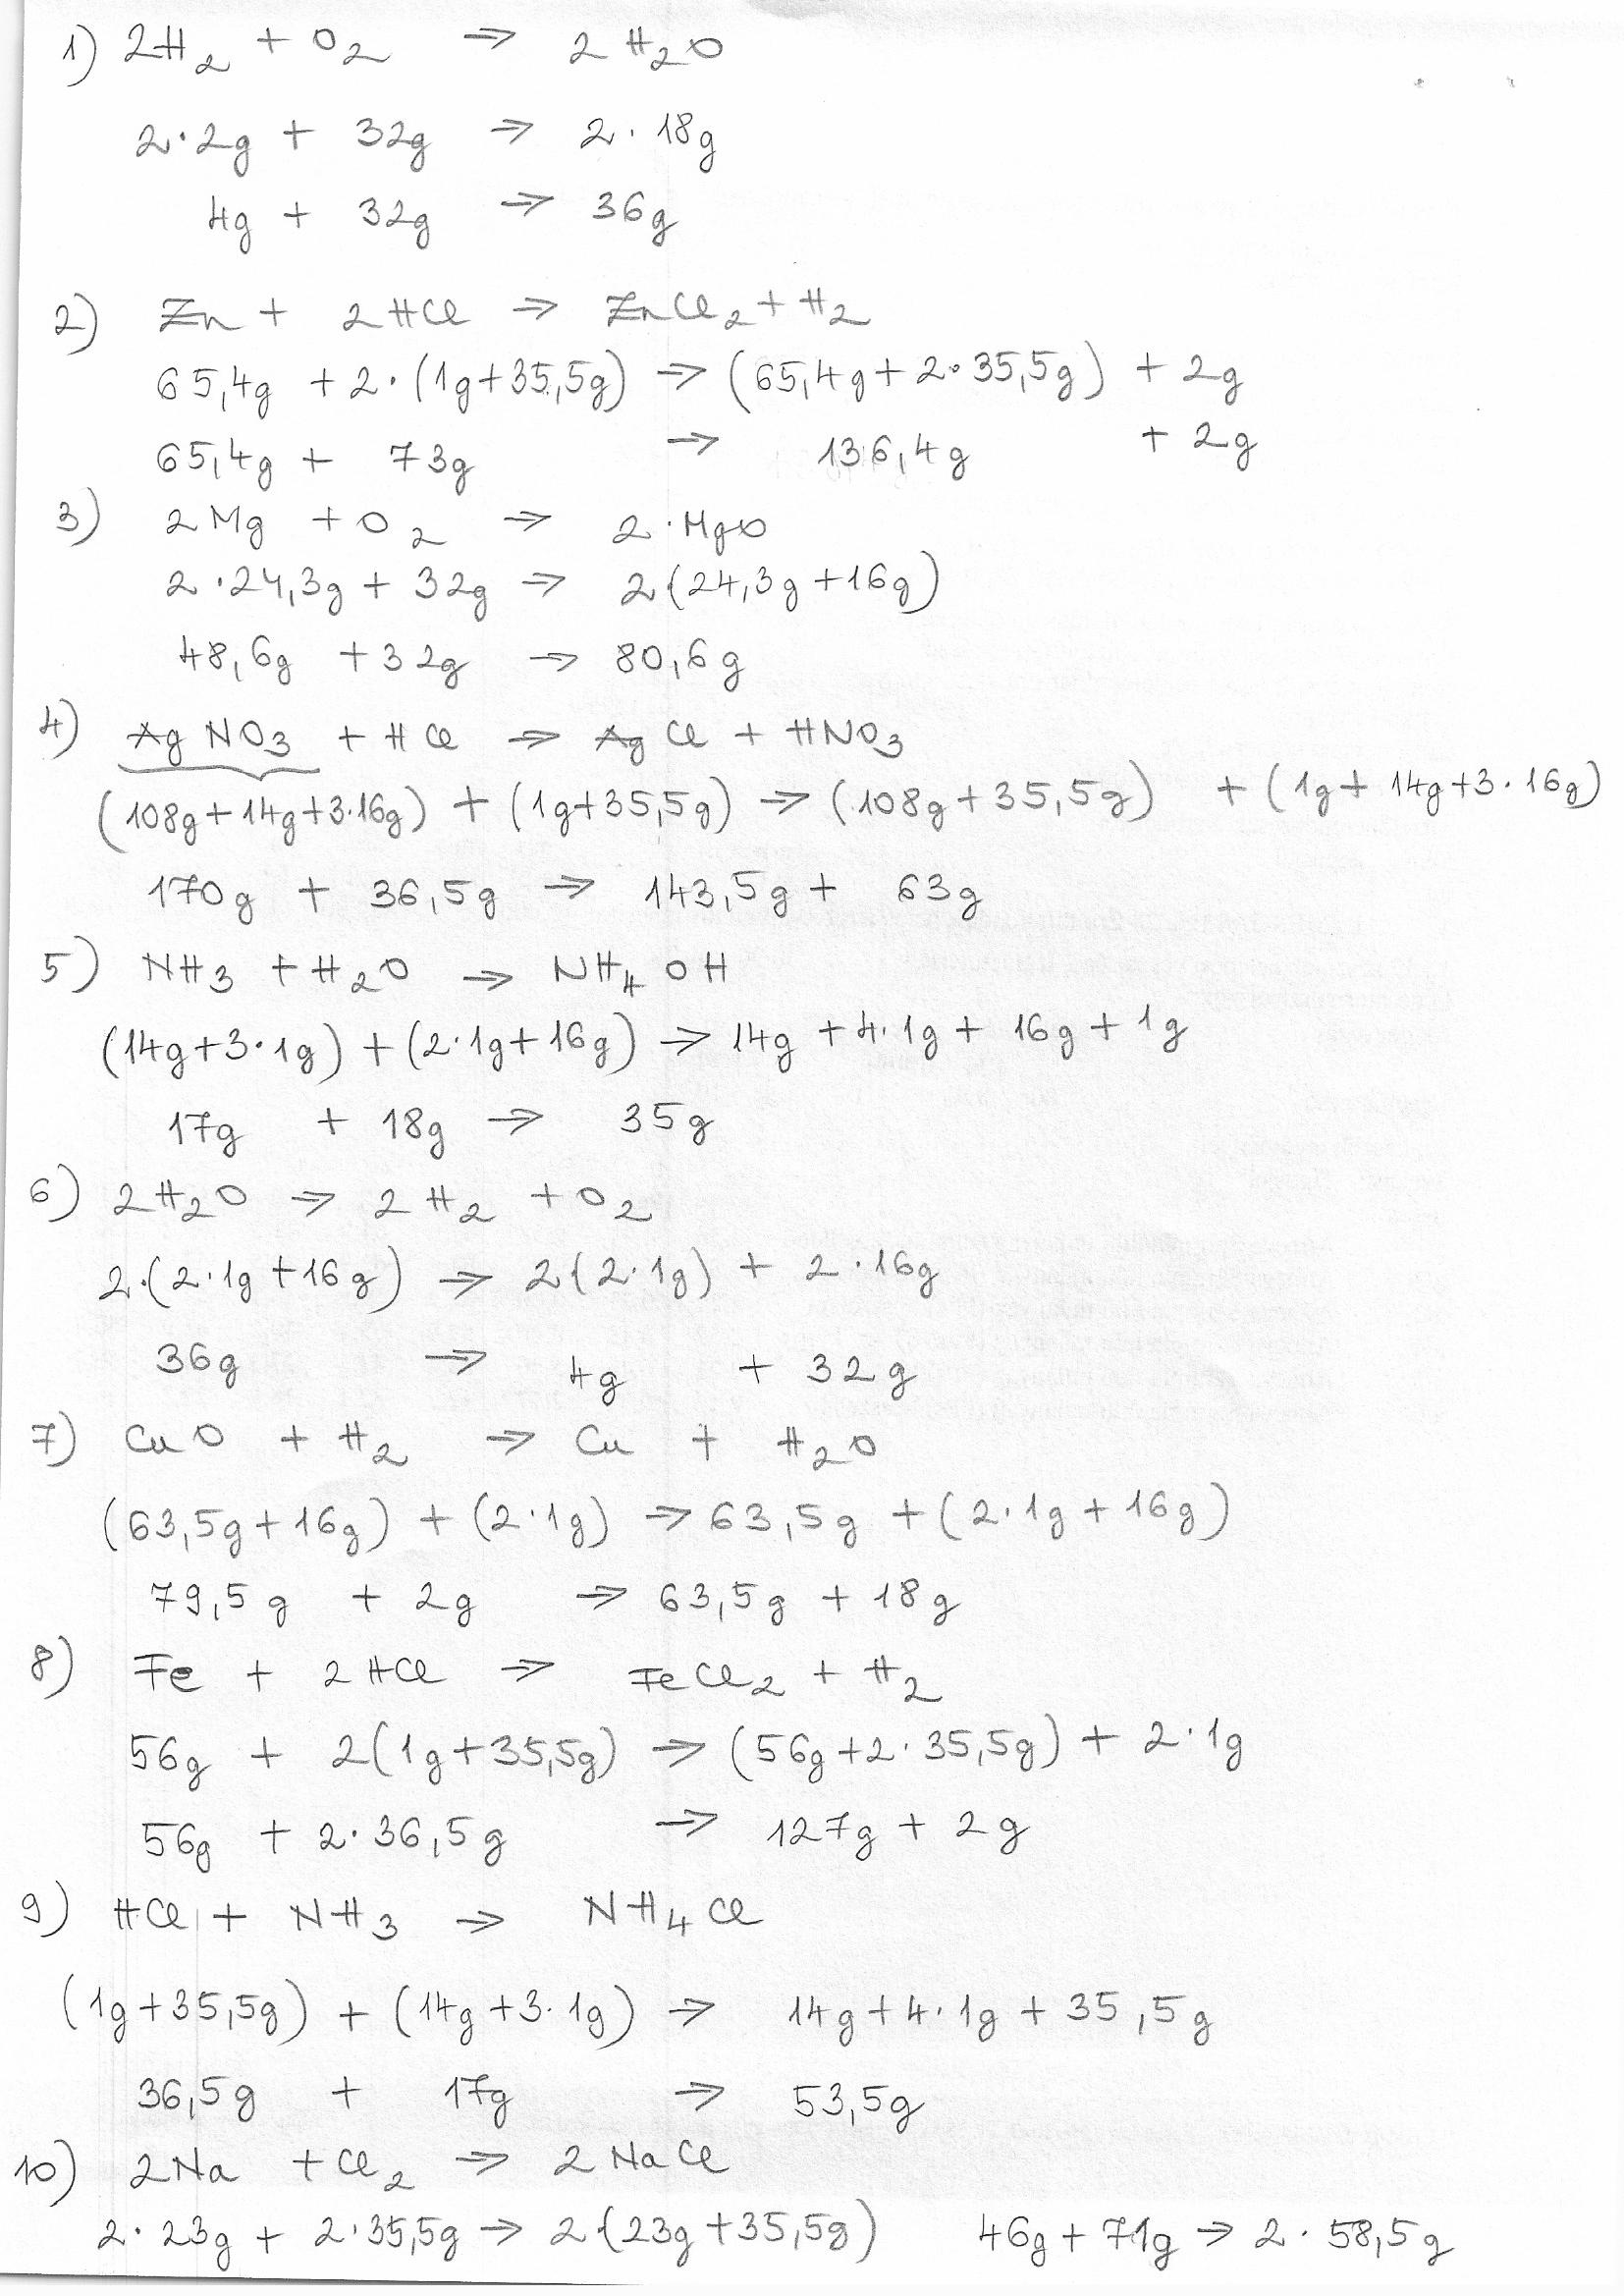 1) 2H₂ + O₂ ⇒ 2 H₂O
2·2g + 32g ⇒ 2·18g
4g + 32g ⇒ 36g
2) Zn + 2HCl ⇒ ZnCl₂ + H₂
65,4g + 2·(1g+35,5g) ⇒ (65,4g+2·35,5g) + 2g
65,4g + 73g ⇒ 136,4g + 2g
3) 2Mg + O₂ ⇒ 2·MgO
2·24,3g + 32g ⇒ 2(24,3g+16g)
48,6g + 32g ⇒ 80,6g
4) AgNO₃ + HCl ⇒ AgCl + HNO₃
(108g+14g+3·16g) + (1g+35,5g) ⇒ (108g+35,5g) + (1g+14g+3·16g)
170g + 36,5g ⇒ 143,5g + 63g
5) NH₃ + H₂O ⇒ NH₄OH
(14g+3·1g) + (2·1g+16g) ⇒ 14g + 4·1g + 16g + 1g
17g + 18g ⇒ 35g
6) 2H₂O ⇒ 2H₂ + O₂
2·(2·1g+16g) ⇒ 2(2·1g) + 2·16g
36g ⇒ 4g + 32g
7) CuO + H₂ ⇒ Cu + H₂O
(63,5g+16g) + (2·1g) ⇒ 63,5g + (2·1g+16g)
79,5g + 2g ⇒ 63,5g + 18g
8) Fe + 2HCl ⇒ FeCl₂ + H₂
56g + 2(1g+35,5g) ⇒ (56g+2·35,5g) + 2·1g
56g + 2·36,5g ⇒ 127g + 2g
9) HCl + NH₃ ⇒ NH₄Cl
(1g+35,5g) + (14g+3·1g) ⇒ 14g+4·1g+35,5g
36,5g + 17g ⇒ 53,5g
10) 2Na + Cl₂ ⇒ 2NaCl
2·23g + 2·35,5g ⇒ 2(23g+35,5g) 46g + 71g ⇒ 2·58,5g